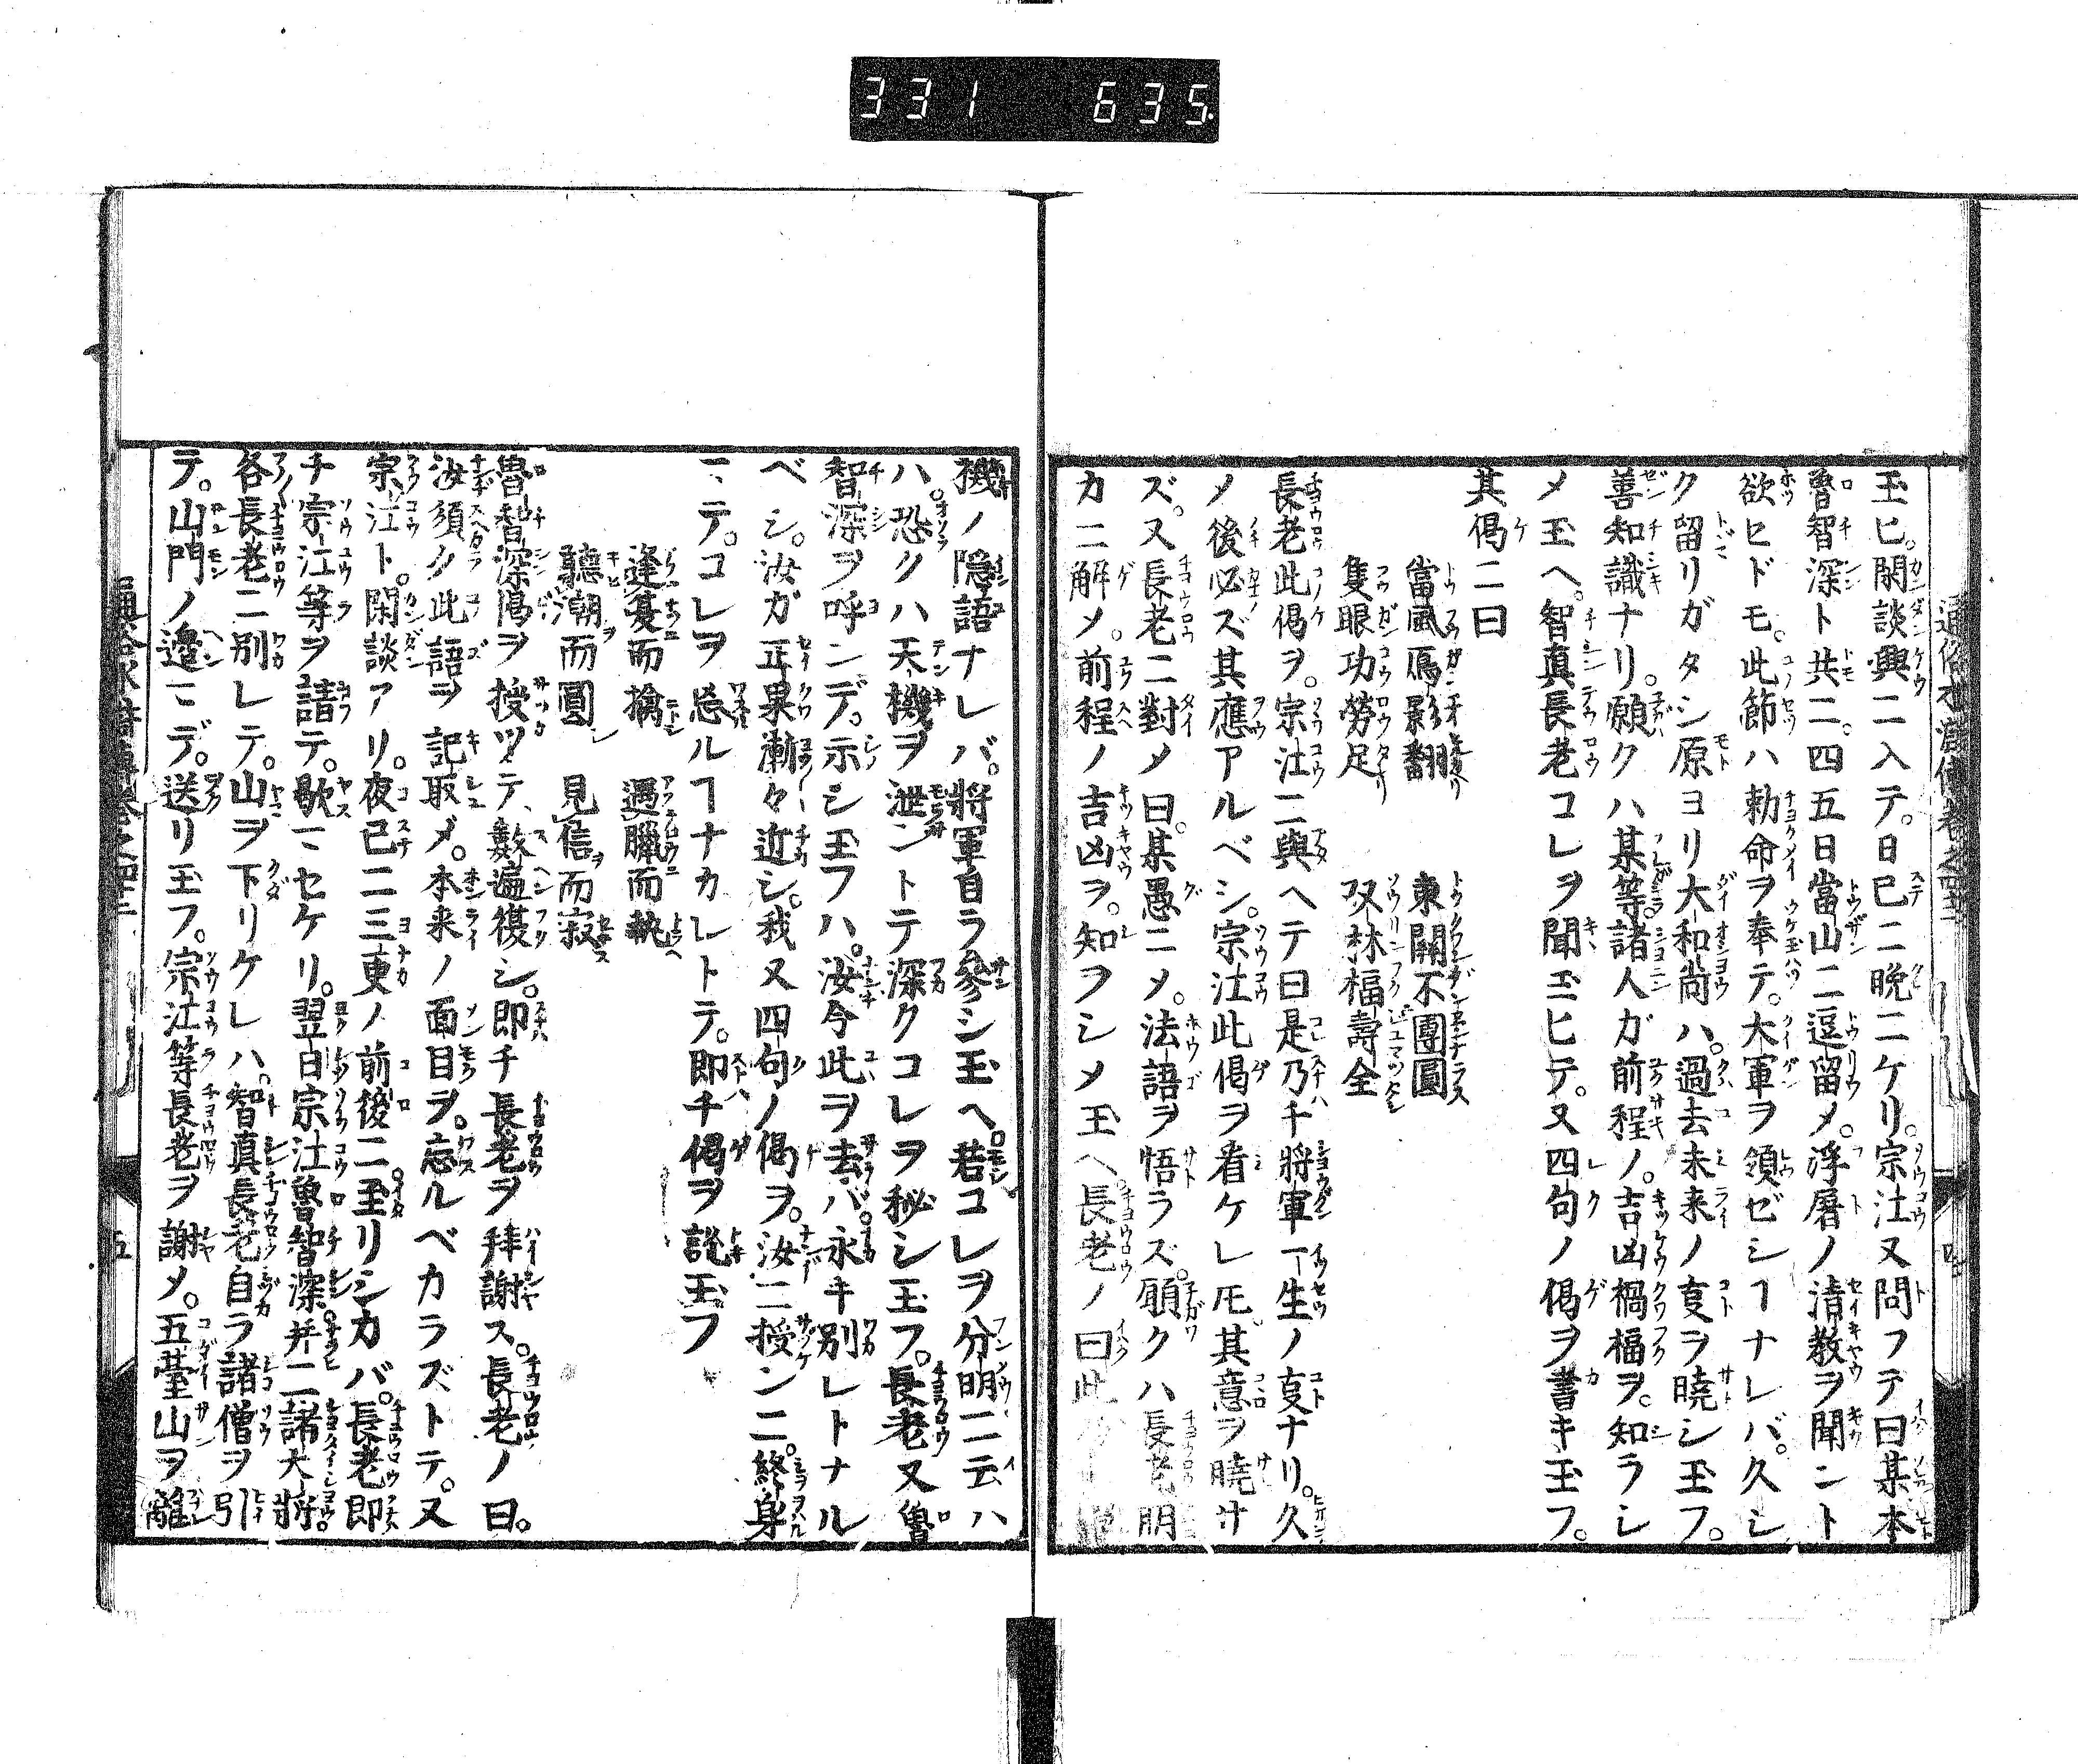 331 635
通俗水滸傳卷之四十二
玉ヒ。閑談興ニ入テ。日已ニ晩ニケリ。宗江又問フテ曰某本
魯智深ト共ニ。四五日當山ニ逗留メ。浮屠ノ清教ヲ聞ント
欲ヒドモ。此節ハ勅命ヲ奉テ。大軍ヲ領ゼシヿナレバ。久シ
ク留リガタシ原ヨリ大和尚ハ。過去未来ノ㕝ヲ曉シ玉フ。
善知識ナリ。願クハ某等諸人ガ前程ノ。吉凶禍福ヲ。知ラシ
メ玉ヘ。智真長老コレヲ聞玉ヒテ。又四句ノ偈ヲ書キ玉フ。
其偈ニ曰
當風鴈影翻　東闕不團圓
隻眼功勞足　双林福壽全
長老此偈ヲ。宗江ニ與ヘテ曰是乃チ將軍一生ノ㕝ナリ。久
ノ後必ズ其應アルベシ。宗江此偈ヲ看ケレ𪜈其意ヲ曉サ
ズ。又長老ニ對メ曰。某愚ニメ。法語ヲ悟ラズ。願クハ長老明
カニ解メ。前程ノ吉凶ヲ。知ヲシメ玉ヘ。長老ノ曰此
機ノ隠語ナレバ。將軍自ラ參シ玉ヘ。若コレヲ分明ニ云ハ
ハ。恐クハ天機ヲ泄ントテ深クコレヲ秘シ玉フ。長老又魯
智深ヲ呼ンデ。示シ玉フハ。汝今此ヲ去バ。永キ別レトナル
ベシ。汝ガ正果漸々近シ。我又四句ノ偈ヲ。汝ニ授ンニ。終身
ニテ。コレヲ忘ルヿナカレトテ。即チ偈ヲ説玉フ
逢夏而擒　遇臘而執
聽潮而圓　見信而寂
魯智深偈ヲ授ツテ、數遍復シ。即チ長老ヲ拜謝ス。長老ノ曰。
汝須ク此語ヲ記取メ。本来ノ面目ヲ。忘ルベカラズトテ。又
宗江ト。閑談アリ。夜已ニ三更ノ前後ニ。至リシカバ。長老即
チ宗江等ヲ請テ。歇ニセケリ。翌日宗江魯智深。并ニ諸大將。
各長老ニ別レテ。山ヲ下リケレハ。智真長老自ラ諸僧ヲ引
テ。山門ノ邊ニデ。送リ玉フ。宗江等長老ヲ謝メ。五臺山ヲ離
五